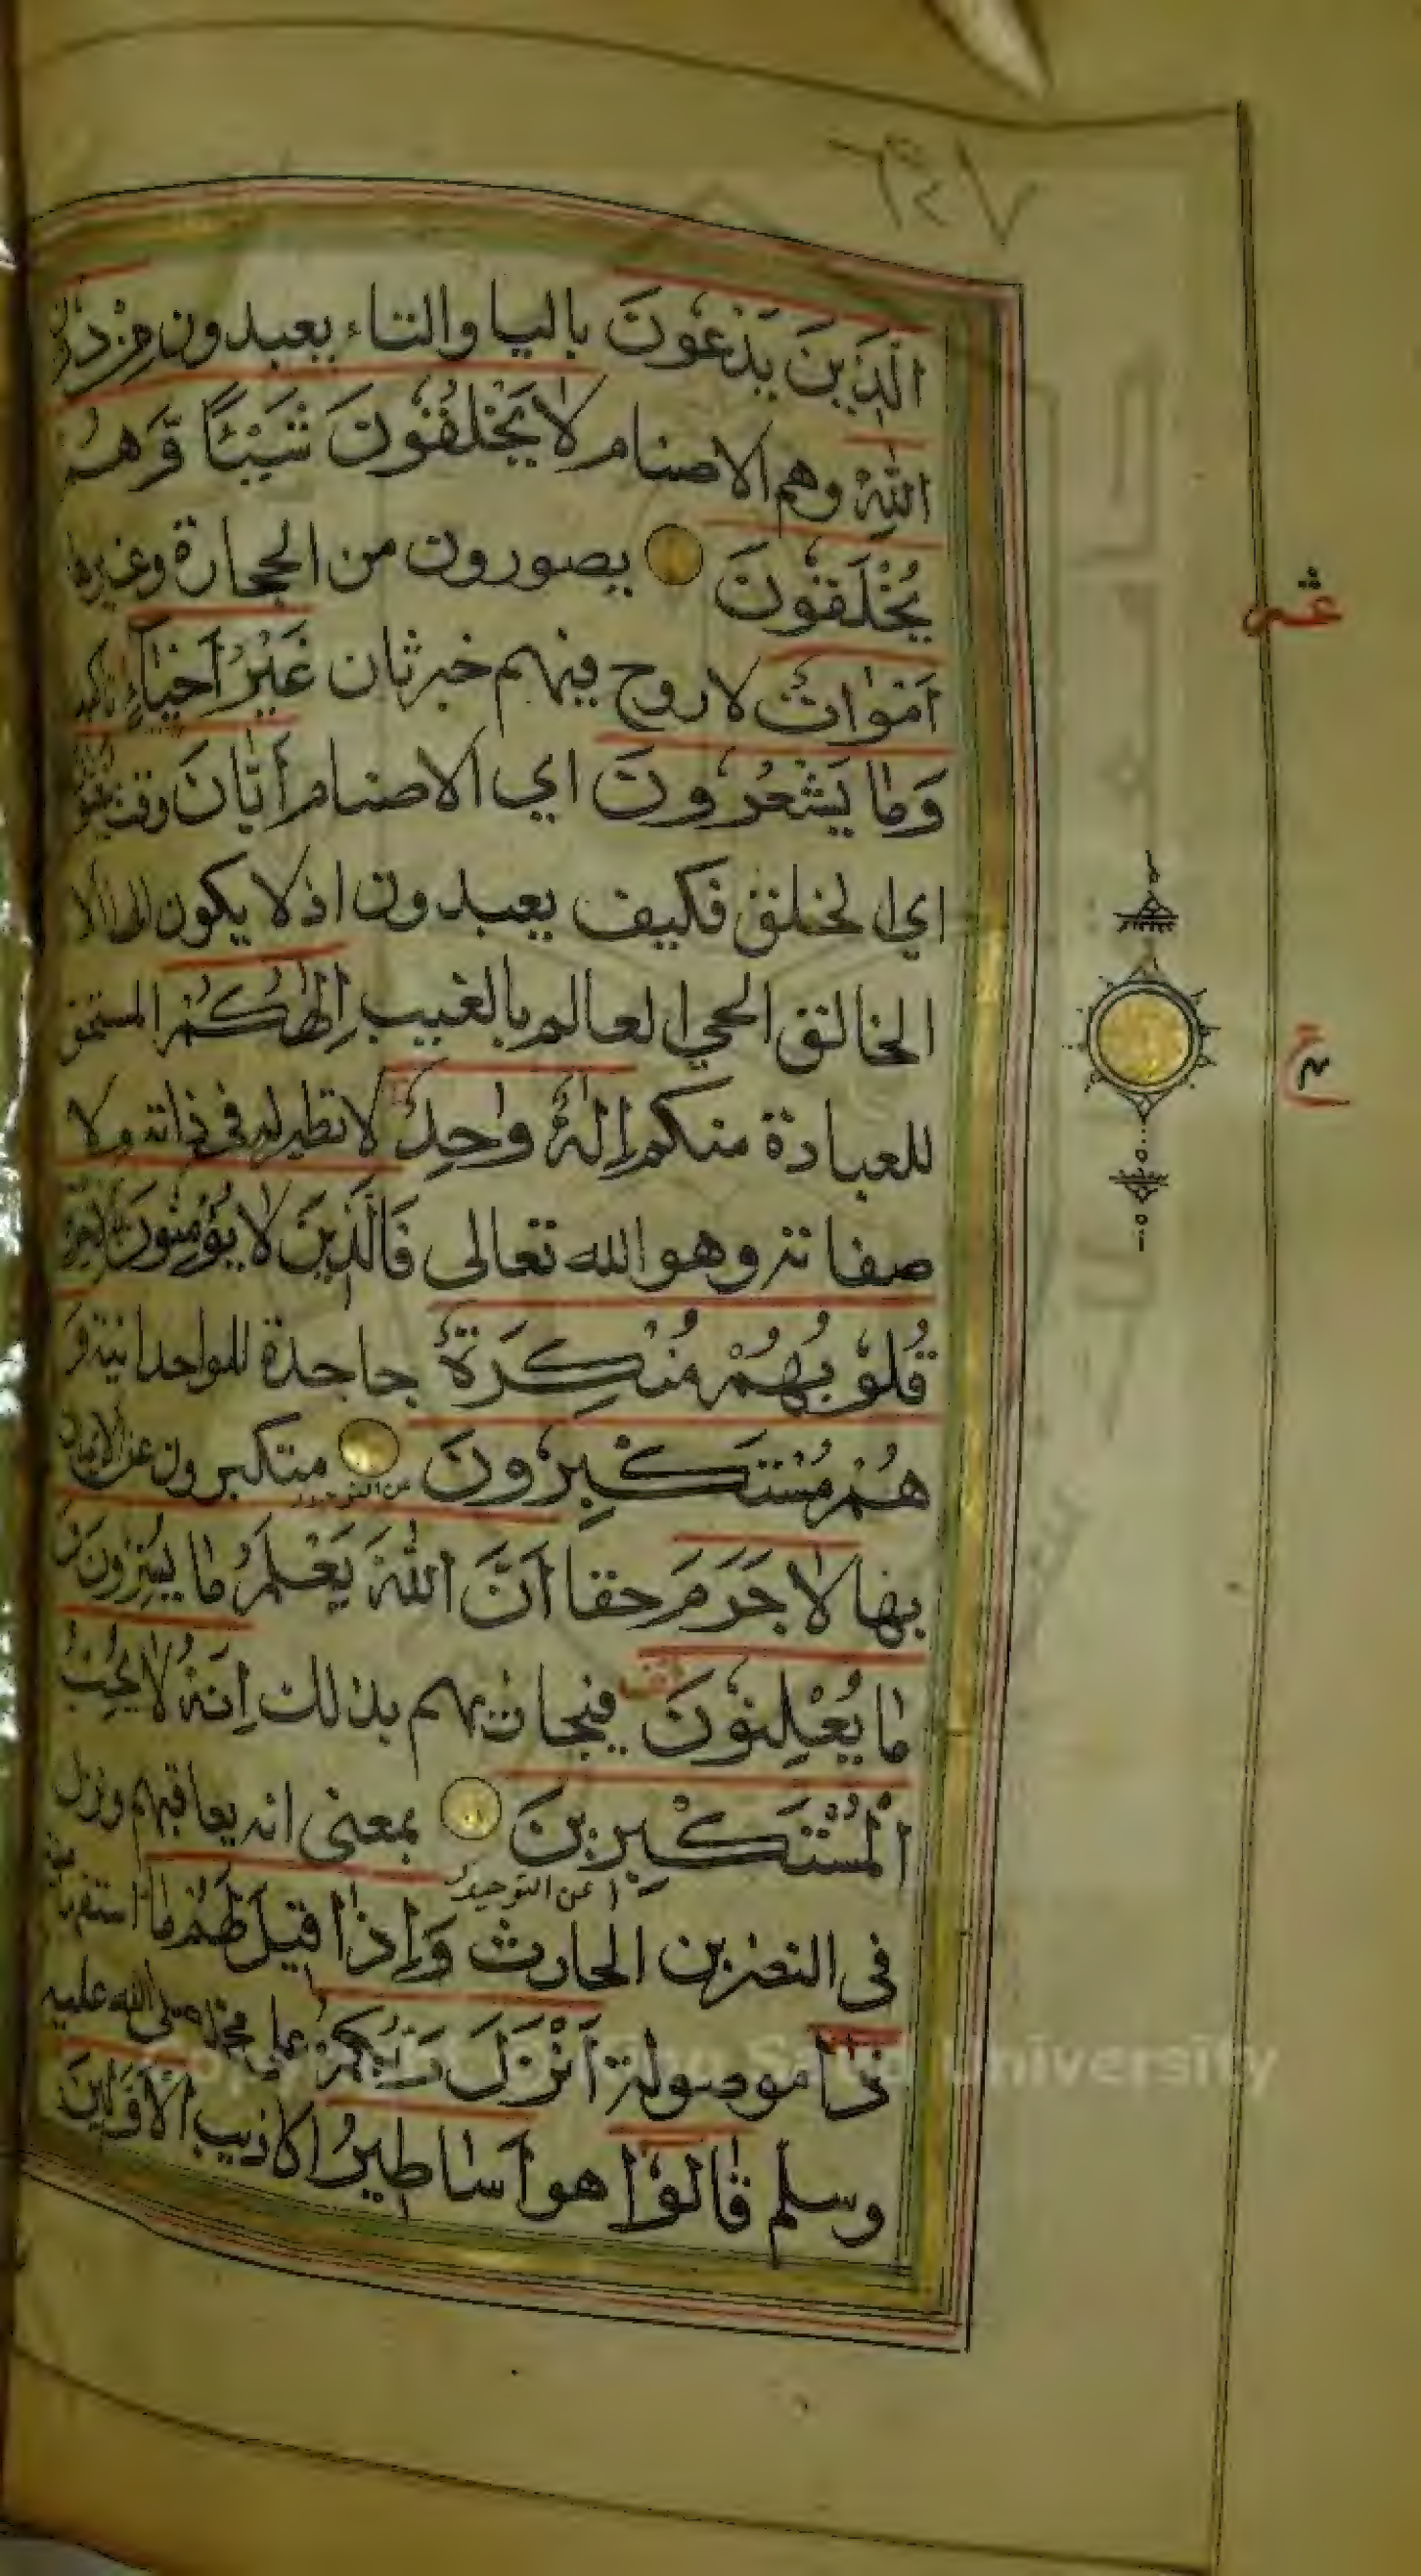 ٣٤٧
الَّذِينَ يَدْعُونَ باليا والتاء يعبدون مِنْ دُونِ
اللهِ وهم الاصنام لَا يَخْلُقُونَ شَيْئًا وَّهُمْ
يُخْلَقُونَ يصورون من الحجارة وغيرها
اَمْوَاتٌ لاروح فيهم خبر ثان غَيْرُ اَحْيَاءٍ تاكيد
وَمَا يَشْعُرُونَ اي الاصنام اَيَّانَ وقت يُبْعَثُونَ
اي الخلق فكيف يعبدون اذ لا يكون الها الا
الخالق الحي العالم بالغيب اِلٰهُكُمْ المستحق
للعبادة منكم اِلٰهٌ وَاحِدٌ لا نظير له في ذاته ولا
صفاته وهو الله تعالى فَالَّذِينَ لَا يُؤْمِنُونَ بِالْاٰخِرَةِ
قُلُوبُهُمْ مُنْكِرَةٌ جاحدة للواحدانية وَ
هُمْ مُسْتَكْبِرُونَ متكبرون عن الايمان
بها لَا جَرَمَ حقا اَنَّ اللهَ يَعْلَمُ مَا يُسِرُّونَ وَ
مَا يُعْلِنُونَ فيجازيهم بذلك اِنَّهُ لَا يُحِبُّ
الْمُسْتَكْبِرِينَ بمعنى انه يعاقبهم ونزل
عن التوحيد
في النضر بن الحارث وَاِذَا قِيلَ لَهُمْ مَا استفهامية
ذَا موصولة اَنْزَلَ رَبُّكُمْ على محمد صلى الله عليه
وسلم قَالُوا هو اَسَاطِيرُ الاكاذيب الْاَوَّلِينَ
عشر
ع
Copyright © King Saud University